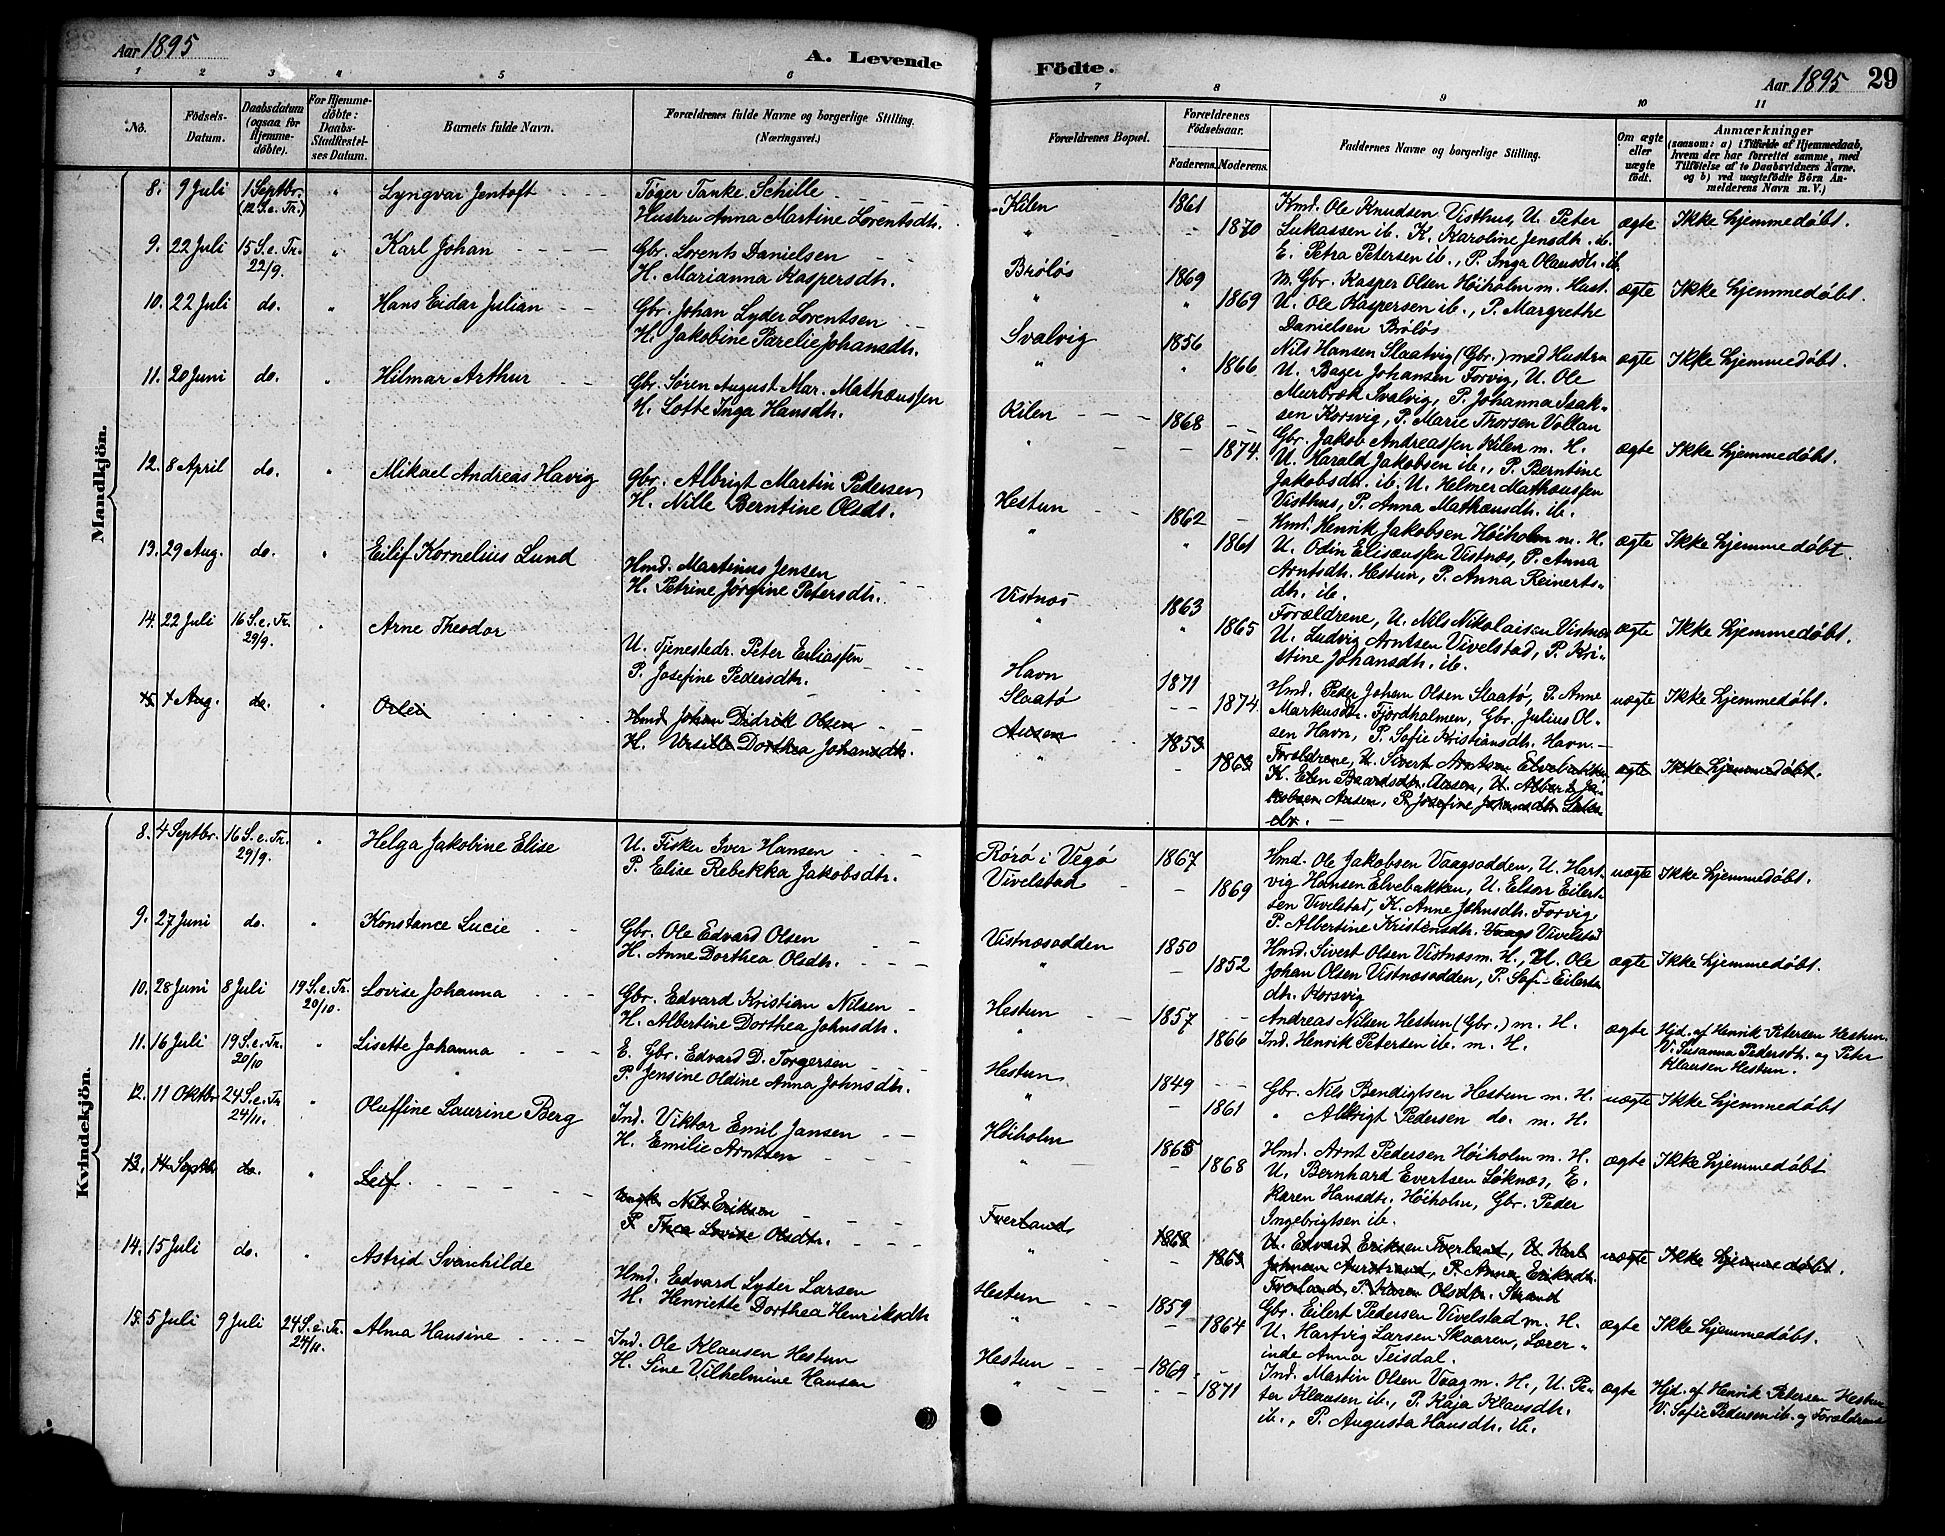 Aar 1895
A. Levende Födte.
Aar 1895 29
1 2 3 4 5 6 7 8 9 10 11
No.
Födsels-Datum.
Daabsdatum (ogsaa for Hjemme-döbte).
For Hjemme-döbte: Daabs-Stadfæstelses Datum.
Barnets fulde Navn.
Forældrenes fulde Navne og borgerlige Stilling. (Næringsvei.)
Forældrenes Bopæl.
Forældrenes Födselsaar.
Faderens. Moderens.
Faddernes Navne og borgerlige Stilling.
Om ægte eller uægte födt.
Anmærkninger
(saasom: a) i Tilfælde af Hjemmedaab, hvem der har forrettet samme, med Tilföielse af to Daabsvidners Navne. og b) ved uægtefödte Börn Anmelderens Navn m. V.)
Mandkjön.
8. 9 Juli 1 Septbr. (12 S. e. Tr.) " Lyngvar Jentoft
Töger Tanke Schille
Hustru Anna Martine Lorentsdh.
Kilen 1861 1870
Kmd. Ole Knudsen Visthus, U. Peter
Lukassen ib. K. Karoline Jensdh. ib.
E. Petra Petersen ib., P. Inga Olausdh. ib.
ægte Ikke hjemmedöbt.
9. 22 Juli 15 S. e. Tr. 22/9. " Karl Johan
Gbr. Lorents Danielsen
H. Marianna Kaspersdh.
Brölös 1869 1869
M. Gbr. Kasper Olsen Höiholm m. Hust.
U. Ole Kaspersen ib., P. Margrethe
Danielsen Brölös
ægte Ikke hjemmedöbt.
10. 22 Juli do. " Hans Eidar Julian
Gbr. Johan Lyder Lorentsen
H. Jakobine Parelie Johansdh.
Svalvig 1856 1866
Nils Hansen Slaatvig (Gbr.) med Hustru
U. Bager Johansen Forvig, U. Ole
Murbræk Svalvig, P. Johanna Isak-
sen Korsvig, P. Marie Thorsen Vollan
ægte Ikke hjemmedöbt.
11. 20 Juni do. " Hilmar Arthur
Gbr. Sören August Mar. Mathæussen
H. Lotte Inga Hansdh.
Kilen 1868 1874
Gbr. Jakob Andreassen Kilen m. H.
U. Harald Jakobsen ib., P. Berntine
Jakobsdh. ib. U. Helmer Mathæussen
Visthus, P. Anna Mathæusdh. ib.
ægte Ikke hjemmedöbt.
12. 8 April do. " Mikael Andreas Havig
Gbr. Albrigt Martin Pedersen
H. Nille Berntine Olsdt.
Hestun 1862 1861
Hmd. Henrik Jakobsen Höiholm m. H.
U. Odin Elisæussen Vistnæs, P. Anna
Arntsdh. Hestun, P. Anna Reinerts-
dh. ib.
ægte Ikke hjemmedöbt.
13. 29 Aug. do. " Eilif Kornelius Lund
Hmd. Martinus Jensen
H. Petrine Jörgine Petersdh.
Vistnæs 1863 1865
Forældrene, U. Nils Nikolaisen Vistnæs
U. Ludvig Arntsen Vivelstad, P. Kri-
stine Johansdh. ib.
ægte Ikke hjemmedöbt.
14. 22 Juli 16 S. e. Tr. 29/9. " Arne Theodor
U. Tjenestedr. Peter Eliassen
P. Josefine Pedersdh.
Havn
Slaatö 1871 1874
Hmd. Peder Johan Olsen Slaatö, P. Anne
Markusdh. Fjordholmen, Gbr. Julius Ol-
sen Havn, P. Sofie Kristiansdh. Havn.
uægte Ikke hjemmedöbt.
15. 4 Aug. do. " Orlei
Hmd. Johan Didrik Olsen
H. Ursille Dorthea Johansdh.
Ausen 1853 1863
Forældrene, U. Sivert Arntsen Elvebakken
K. Elen Baardsdh. Ausen, U. Albert Ja-
kobsen Ausen, P. Josefine Johansdh.
ægte Ikke hjemmedöbt.
Kvindekjön.
8. 4 Septbr. 16 S. e. Tr. 29/9. " Helga Jakobine Elise
U. Fisker Iver Hansen
P. Elise Rebekka Jakobsdh.
Rörö i Vegö
Vivelstad 1867 1869
Hmd. Ole Jakobsen Vaagsodden, U. Hart-
vig Hansen Elvebakken, U. Elsor Eilert-
sen Vivelstad, K. Anne Johnsdh. Forvig
P. Albertine Kristensdh. Vaags Vivelstad
uægte Ikke hjemmedöbt.
9. 27 Juni do. " Konstance Lucie
Gbr. Ole Edvard Olsen
H. Anne Dorthea Olsdh.
Vistnæsodden 1850 1852
Hmd. Sivert Olsen Vistnæs m. H., U. Ole
Johan Olsen Vistnæsodden, P. Sofi Eilerts-
dh. Korsvig
ægte Ikke hjemmedöbt.
10. 28 Juni 8 Juli 19 S. e. Tr. 20/10. Lovise Johanna
Gbr. Edvard Kristian Nilsen
H. Albertine Dorthea Johnsdh.
Hestun 1857 1866
Andreas Nilsen Hestun (Gbr.) m. H.
Ind. Henrik Petersen ib. m. H.
ægte Hjd. af Henrik Petersen Hestun.
V. Susanna Pedersdh. og Peter
Klausen Hestun.
11. 16 Juli 19 S. e. Tr. 20/10 " Lisette Johanna
E. Gbr. Edvard D. Torgersen
P. Jensine Oldine Anna Johnsdh.
Hestun 1849 1861
Gbr. Nils Bendigtsen Hestun m. H.
" Albrigt Pedersen do. m. H.
uægte Ikke hjemmedöbt
12. 11 Oktbr 24 S. e. Tr. 24/11. " Oluffine Laurine Berg
Ind. Viktor Emil Jansen
H. Emilie Arntsen
Höiholm 1865 1868
Hmd. Arnt Pedersen Höiholm m. H.
U. Bernhard Evertsen Söknæs, E.
Karen Hansdtr. Höiholm, Gbr. Peder
Ingebrigtsen ib.
ægte Ikke hjemmedöbt
13. 14 Septbr. do. " Leif.
Ungk. Nils Eriksen
P. Thea Lovise Olsdtr.
Tverland 1868 1863
U. Edvard Eriksen Tverland, U. Karl
Johnsen Aurstrand, P. Anna Eriksdh.
Tverland, P. Karen Olsdtr. Strand
uægte Ikke hjemmedöbt.
14. 15 Juli do. " Astrid Svanhilde
Hmd. Edvard Lyder Larsen
H. Henriette Dorthea Henriksdh
Hestun 1859 1864
Gbr. Eilert Pedersen Vivelstad m. H.
U. Hartvig Larsen Skaaren, Lærer-
inde Anna Teisdal.
ægte Ikke hjemmedöbt.
15. 5 Juli 9 Juli 24 S. e. Tr. 24/11. Alma Hansine
Ind. Ole Klausen Hestun
H. Sine Vilhelmine Hansen
Hestun 1869 1871
Ind. Martin Olsen Vaag m. H., U. Pe-
ter Klausen ib., P. Kaja Klausdh.
ib., P. Augusta Hansdh. ib.
ægte Hjd. af Henrik Petersen Hestun
V. Sofie Pedersen ib. og Forældrene